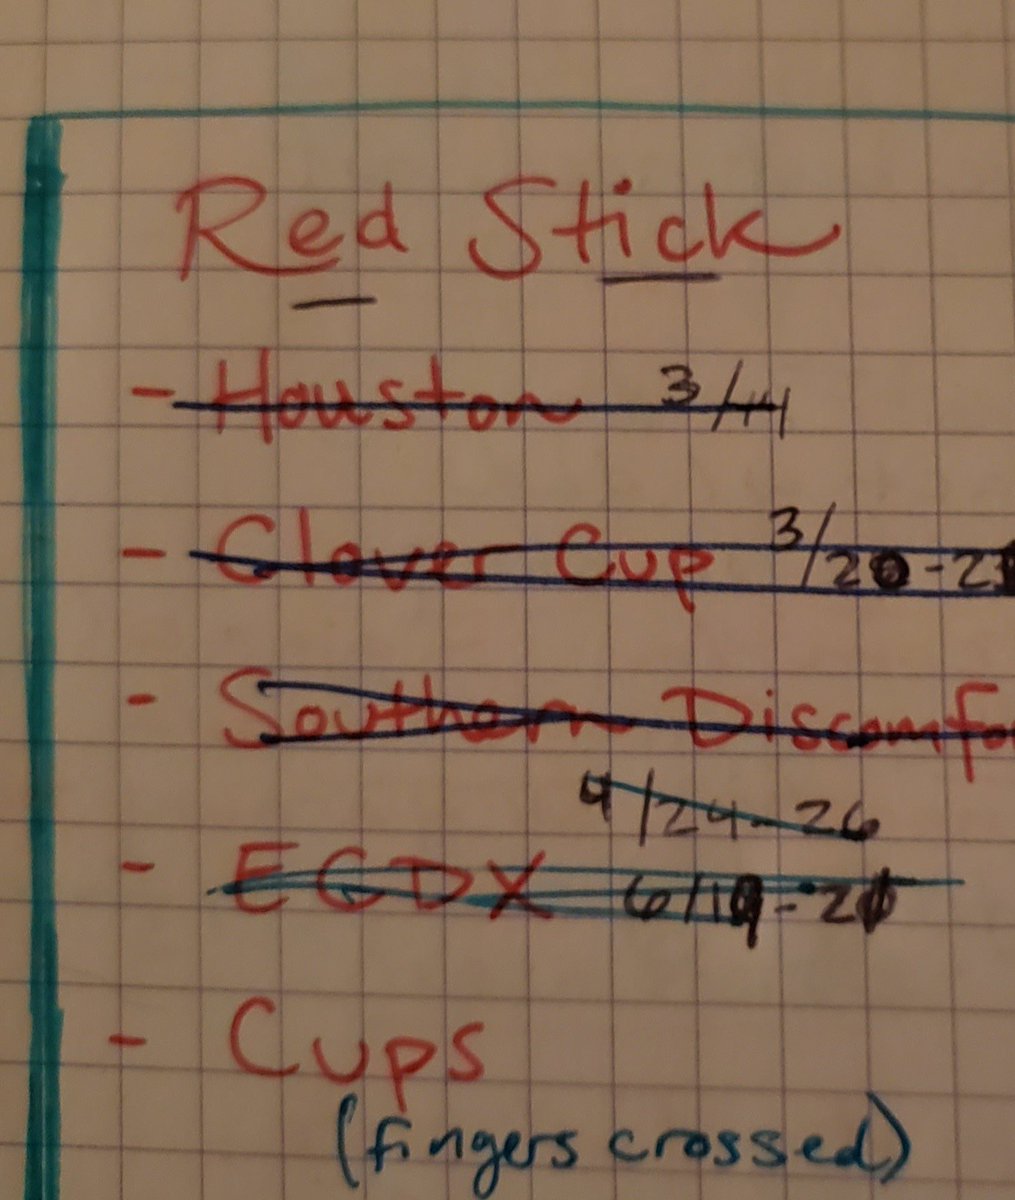 Red Stick
- Houston 3/14
- Clover Cup 3/20-21
- Southern Discomfo
4/24-26
- ECDX 6/19-21
- Cups
(fingers crossed)